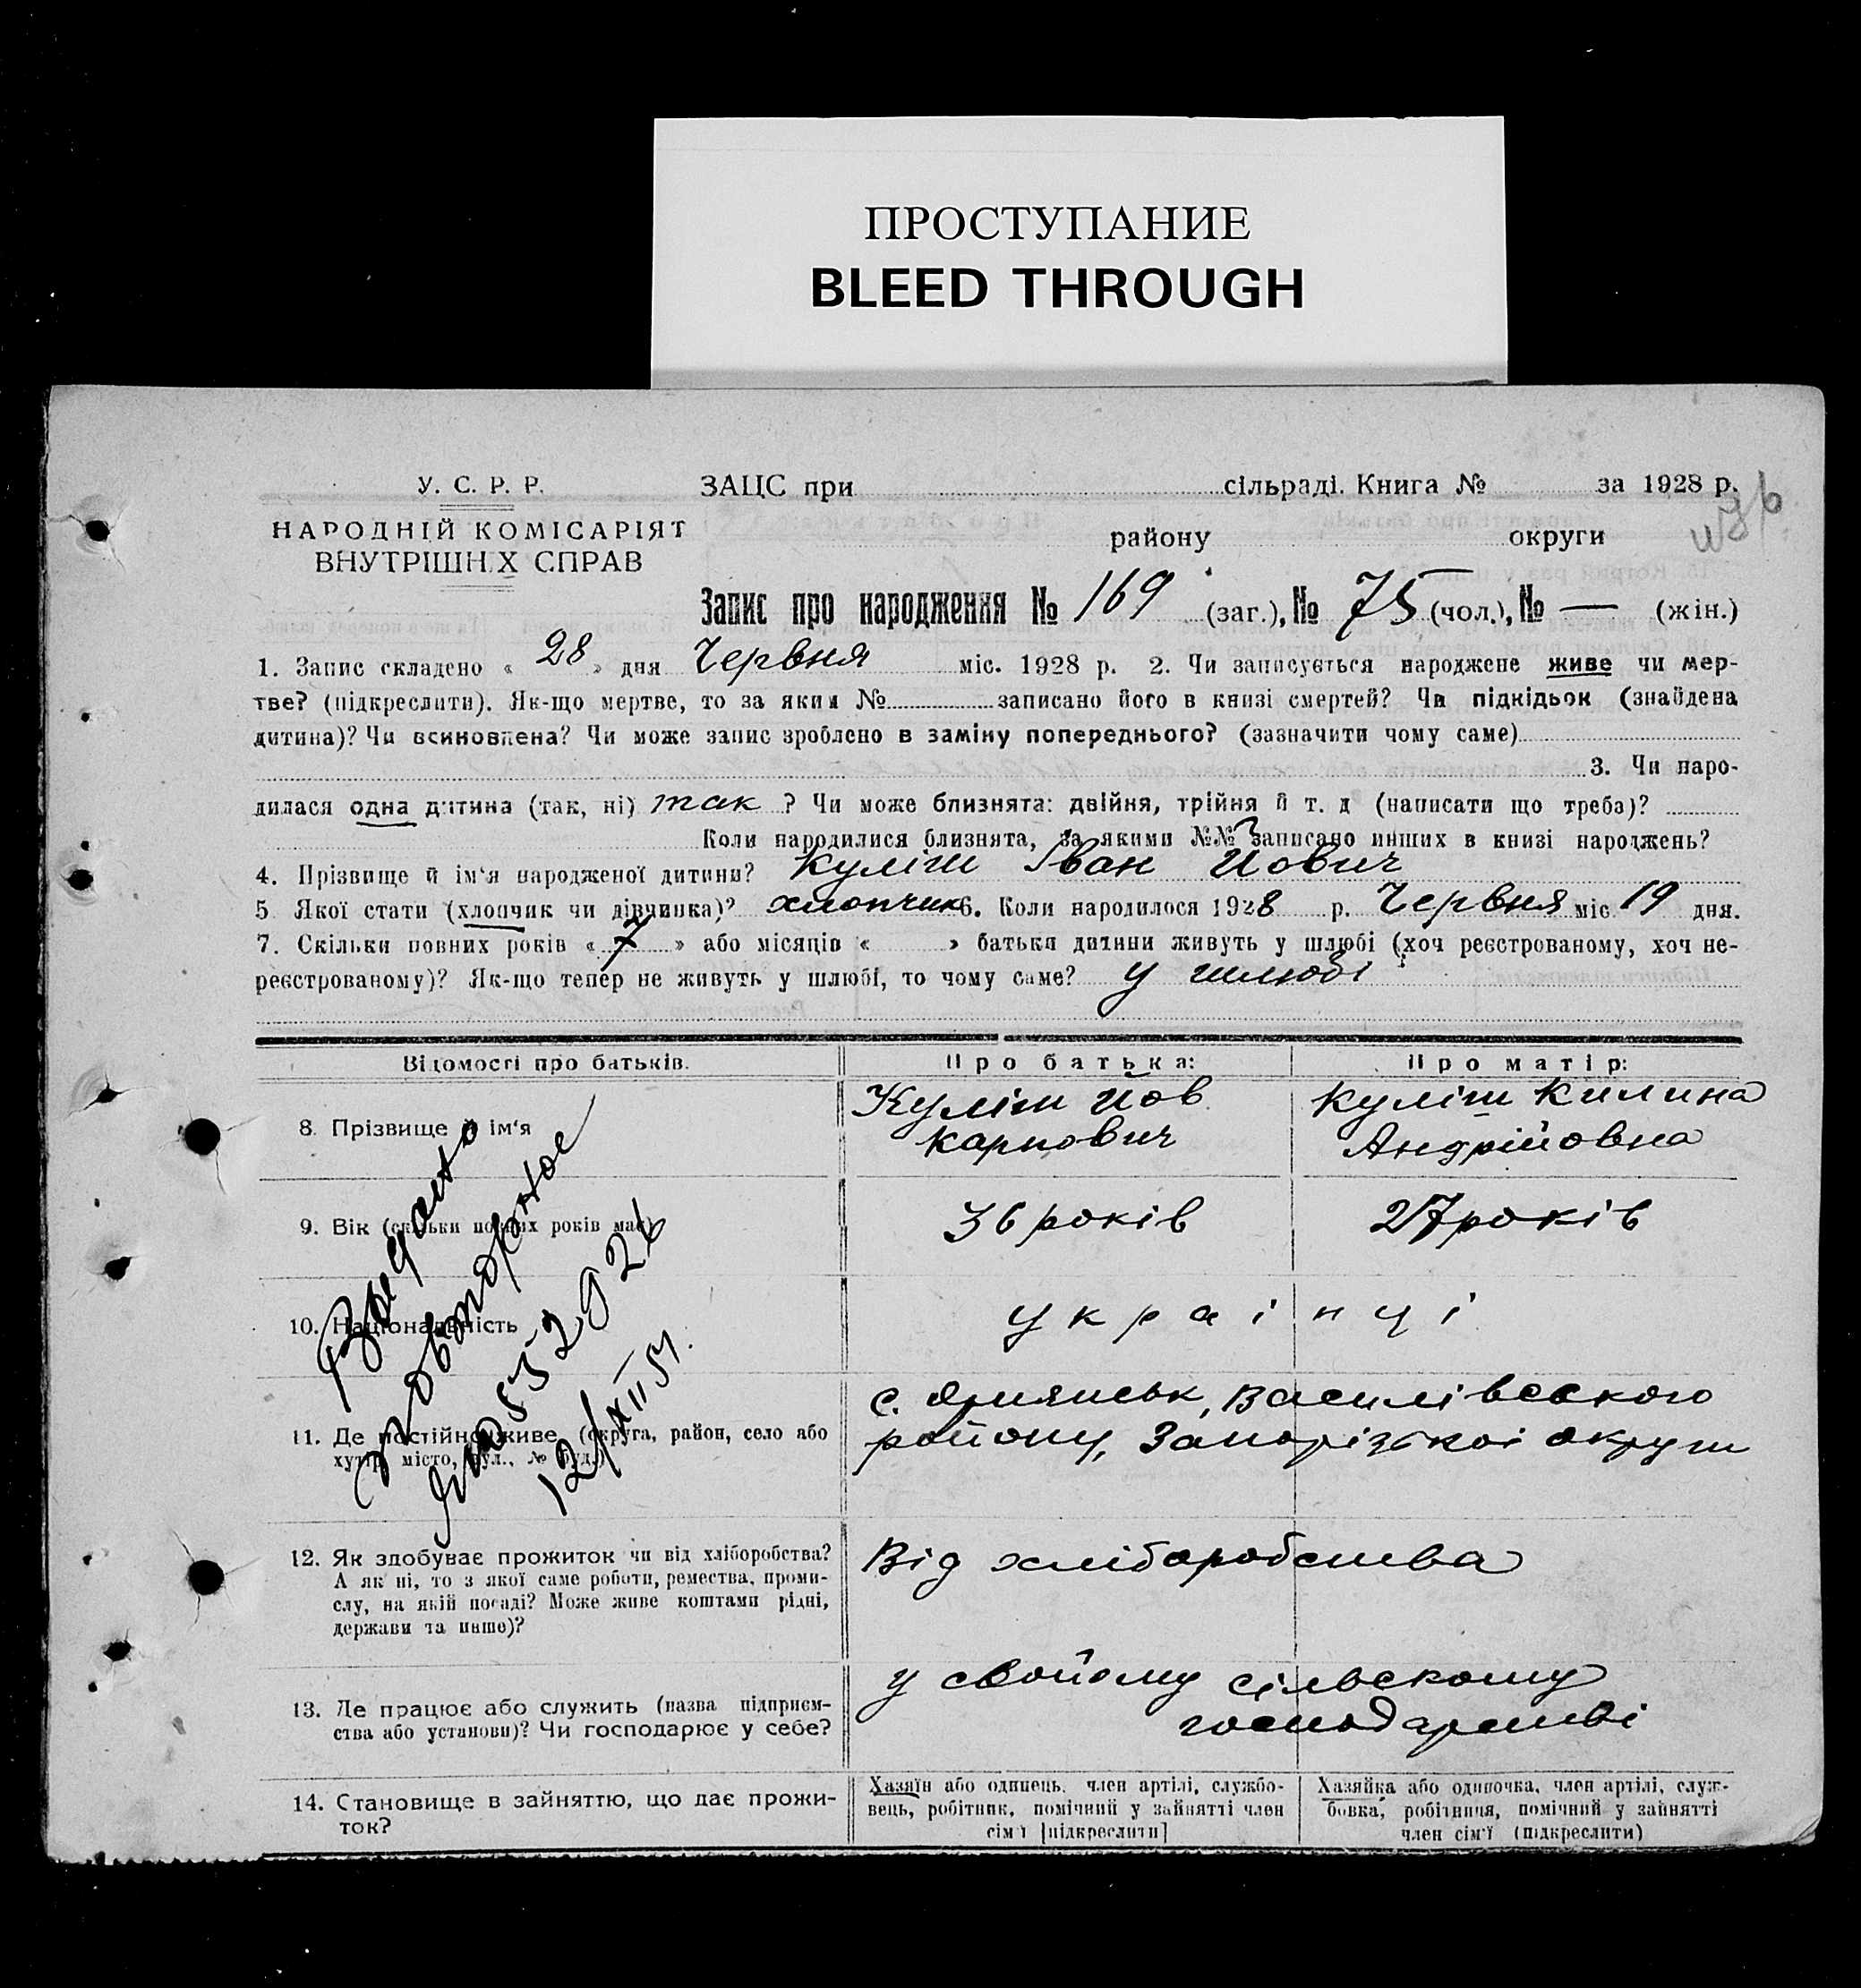 ПРОСТУПАНИЕ
BLEED THROUGH
У. С. Р. Р.
НАРОДНІЙ КОМІСАРІЯТ
ВНУТРІШНИХ СПРАВ
ЗАЦС при сільраді. Книга № за 1928 р.
району округи
Запис про народження № 169 (заг.), № 75 (чол.), № — (жін.)
1. Запис складено « 28 » дня Червня міс. 1928 р. 2. Чи записується народжене живе чи мер-
тве? (підкреслити). Як-що мертве, то за яким № записано його в книзі смертей? Чи підкідьок (знайдена
дитина)? Чи всиновлена? Чи може запис зроблено в заміну попереднього? (зазначити чому саме)
3. Чи наро-
дилася одна дитина (так, ні) так ? Чи може близнята: двійня, трійня й т. д (написати що треба)?
Коли народилися близнята, за якими №№ записано инших в книзі народжень?
4. Прізвище й ім'я народженої дитини? Куліш Іван Йович
5 Якої стати (хлопчик чи дівчинка)? хлопчик 6. Коли народилося 1928 р. Червня міс. 19 дня.
7. Скільки повних років « 7 » або місяців « » батьки дитини живуть у шлюбі (хоч реєстрованому, хоч не-
реєстрованому)? Як-що тепер не живуть у шлюбі, то чому саме? у шлюбі
Відомості про батьків. Про батька: Про матір:
8. Прізвище й ім'я
Куліш Йов
Карпович
Куліш Килина
Андрійовна
9. Вік (скільки повних років має)
36 років
27 років
10. Національність
українці
11. Де постійно живе (округа, район, село або
хутір, місто, вул., № буд.)
с. Василівського
району, Запорізької округи
12. Як здобуває прожиток чи від хліборобства?
А як ні, то з якої саме роботи, ремества, проми-
слу, на якій посаді? Може живе коштами рідні,
держави та инше)?
Від хліборобства
13. Де працює або служить (назва підприєм-
ства або установи)? Чи господарює у себе?
у свойому сільскому
господарстві
14. Становище в зайняттю, що дає прожи-
ток?
Хазяїн або одинець, член артілі, службо-
вець, робітник, помічний у зайнятті член
сім'ї [підкреслити]
Хазяйка або одиночка, член артілі, служ-
бовка, робітниця, помічний у зайнятті
член сім'ї (підкреслити)
Выдано
повторное
12/XII 51.